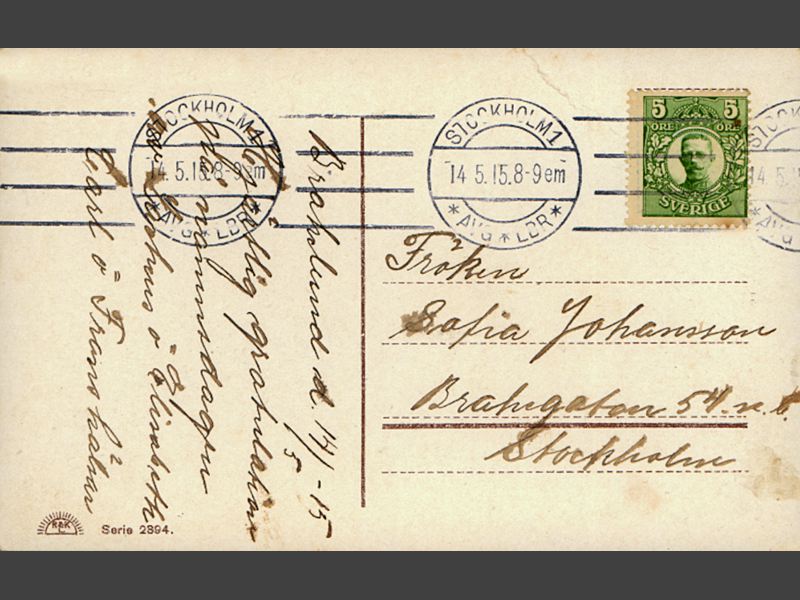 STOCKHOLM 1
14.5.15.8-9em
* AVG * LBR *
STOCKHOLM 1
14.5.15.8-9em
* AVG * LBR *
STOCKHOLM 1
14.5.15
* AVG * LBR
5 5
ÖRE ÖRE
SVERIGE
Fröken
Sofia Johansson
Brahegatan 54. n.b.
Stockholm
d. 14/5 -15
Hjärtlig gratulation
på namnsdagen
Elisabeth
Carl o Frans
RAK
Serie 2394.